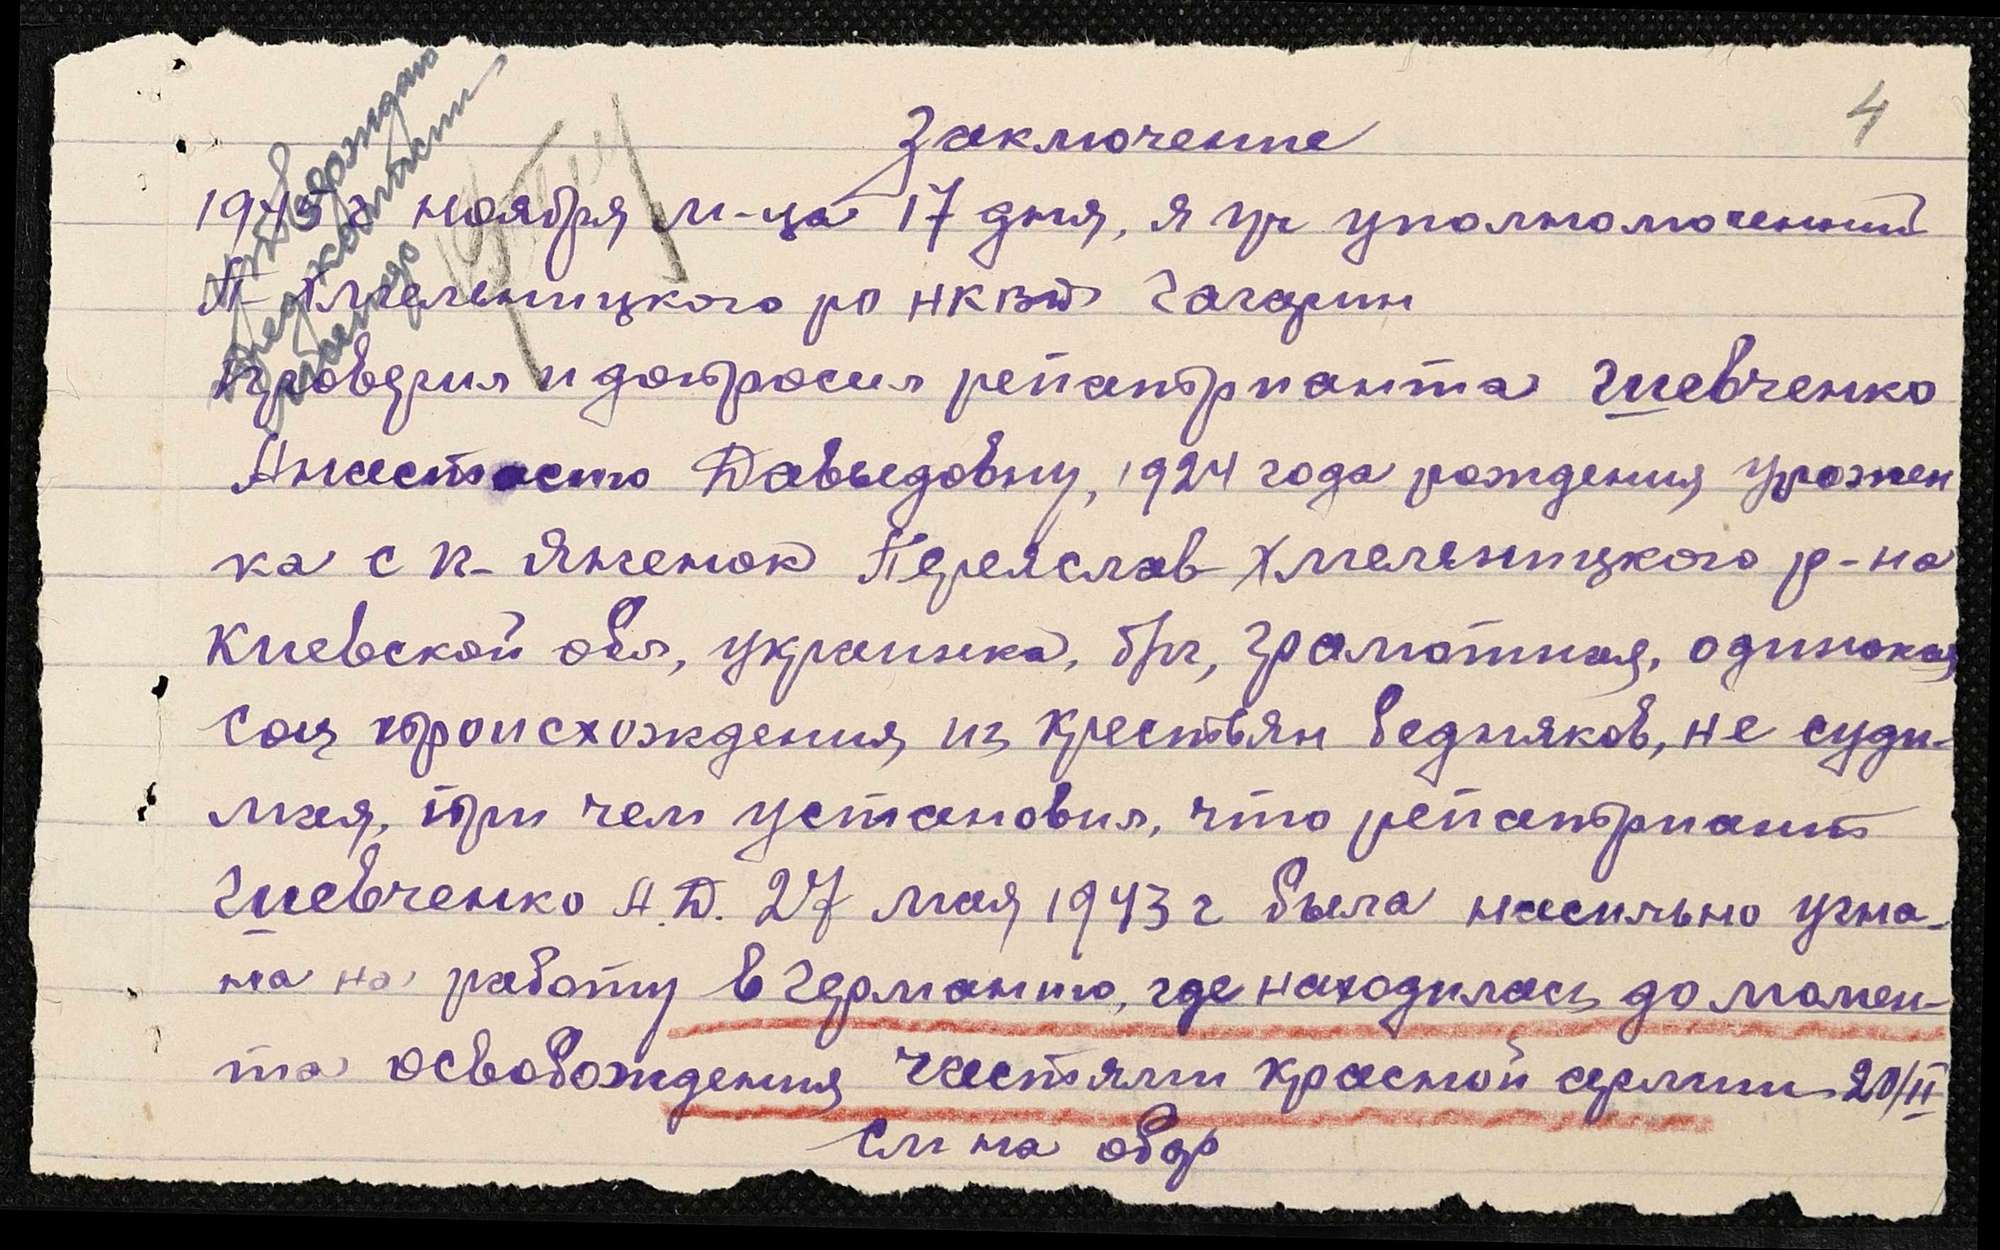 4
Утверждаю
Заключение
1945 г ноября м-ца 17 дня, я уч уполномоченный
П-Хмельницкого ро НКВД Гагарин
проверил и допросил репатрианта Шевченко
Анастасию Давыдовну, 1924 года рождения, урожен
ка с к- Яненок Переяслав-Хмельницкого р-на
Киевской обл, украинка, б/п, грамотная, одинокая
соц происхождения из крестьян бедняков, не суди-
мая, при чем установил, что репатриант
Шевченко А.Д. 27 мая 1943 г была насильно угна-
на на работу в Германию, где находилась до момен-
та освобождения частями красной армии 20/II
См на обор